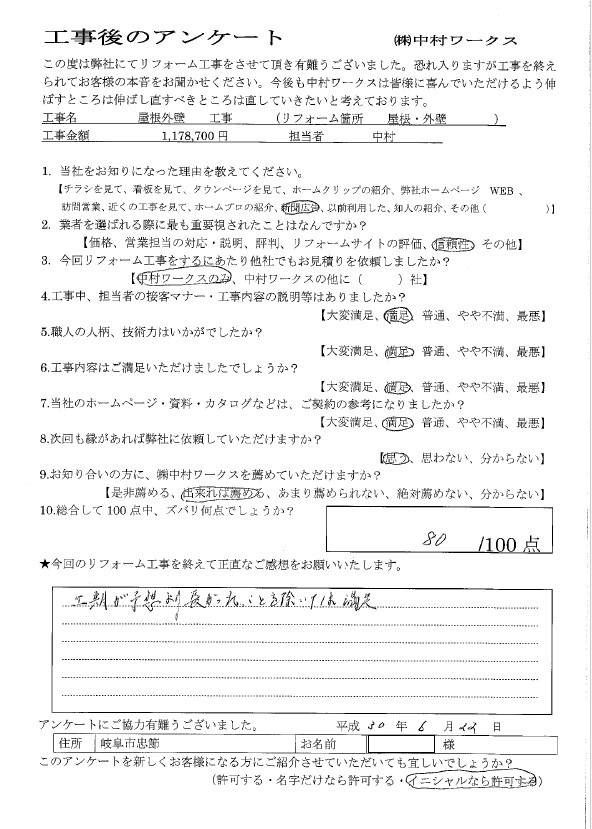 工事後のアンケート ㈱中村ワークス
この度は弊社にてリフォーム工事をさせて頂き有難うございました。恐れ入りますが工事を終え
られてお客様の本音をお聞かせください。今後も中村ワークスは皆様に喜んでいただけるよう伸
ばすところは伸ばし直すべきところは直していきたいと考えております。
工事名 屋根外壁 工事 (リフォーム箇所 屋根・外壁 )
工事金額 1,178,700円 担当者 中村
1. 当社をお知りになった理由を教えてください。
【チラシを見て、看板を見て、タウンページを見て、ホームクリップの紹介、弊社ホームページ WEB 、
訪問営業、近くの工事を見て、ホームプロの紹介、新聞広告、以前利用した、知人の紹介、その他 ( )】
2. 業者を選ばれる際に最も重要視されたことはなんですか？
【価格、営業担当の対応・説明、評判、リフォームサイトの評価、信頼性、その他】
3. 今回リフォーム工事をするにあたり他社でもお見積りを依頼しましたか？
【中村ワークスのみ、中村ワークスの他に ( ) 社】
4.工事中、担当者の接客マナー・工事内容の説明等はありましたか？
【大変満足、満足、普通、やや不満、最悪】
5.職人の人柄、技術力はいかがでしたか？
【大変満足、満足、普通、やや不満、最悪】
6.工事内容はご満足いただけましたでしょうか？
【大変満足、満足、普通、やや不満、最悪】
7.当社のホームページ・資料・カタログなどは、ご契約の参考になりましたか？
【大変満足、満足、普通、やや不満、最悪】
8.次回も縁があれば弊社に依頼していただけますか？
【思う、思わない、分からない】
9.お知り合いの方に、㈱中村ワークスを薦めていただけますか？
【是非薦める、出来れば薦める、あまり薦められない、絶対薦めない、分からない】
10.総合して100点中、ズバリ何点でしょうか？
80 /100点
★今回のリフォーム工事を終えて正直なご感想をお願いいたします。
工期が予想より長かったことを除いては満足
アンケートにご協力有難うございました。 平成 30 年 6 月 22 日
住所 岐阜市忠節 お名前 様
このアンケートを新しくお客様になる方にご紹介させていただいても宜しいでしょうか？
(許可する・名字だけなら許可する・イニシャルなら許可する)